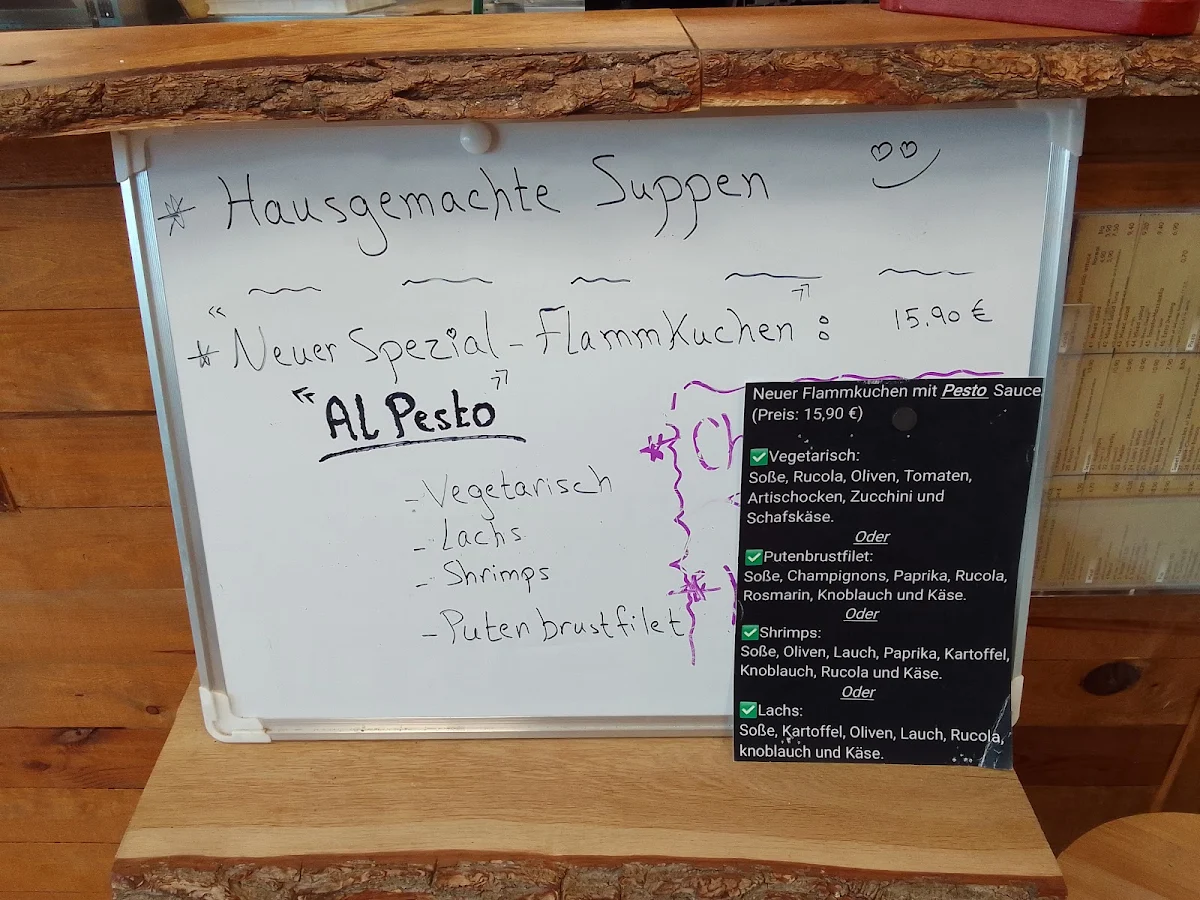 * Hausgemachte Suppen
* "Neuer Spezial-Flammkuchen": 15.90 €
"Al Pesto"
- Vegetarisch
- Lachs
- Shrimps
- Putenbrustfilet
Neuer Flammkuchen mit Pesto Sauce
(Preis: 15,90 €)
✅Vegetarisch:
Soße, Rucola, Oliven, Tomaten,
Artischocken, Zucchini und
Schafskäse.
Oder
✅Putenbrustfilet:
Soße, Champignons, Paprika, Rucola,
Rosmarin, Knoblauch und Käse.
Oder
✅Shrimps:
Soße, Oliven, Lauch, Paprika, Kartoffel,
Knoblauch, Rucola und Käse.
Oder
✅Lachs:
Soße, Kartoffel, Oliven, Lauch, Rucola,
knoblauch und Käse.